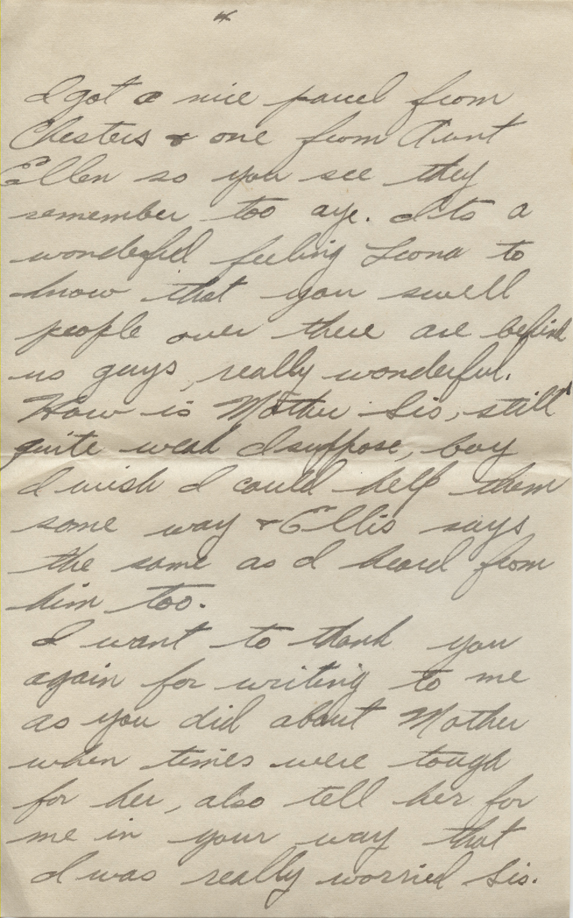 4
I got a nice parcel from
Chesters & one from Aunt
Ellen so you see they
remember too aye. Its a
wonderful feeling Leona to
know that you swell
people over there are behind
us guys, really wonderful.
How is Mother Sis, still
quite weak I suppose, boy
I wish I could help them
some way & Ellis says
the same as I heard from
him too.
I want to thank you
again for writing to me
as you did about Mother
when times were tough
for her, also tell her for
me in your way that
I was really worried Sis.